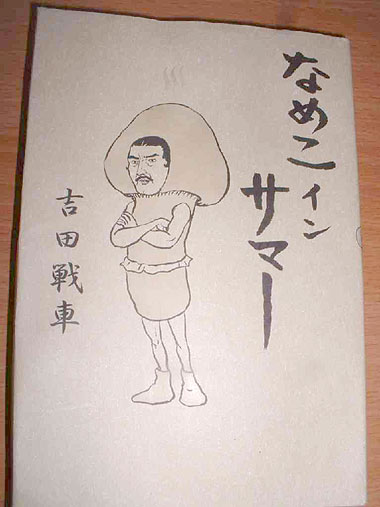 なめこイン
サマー
吉田戦車